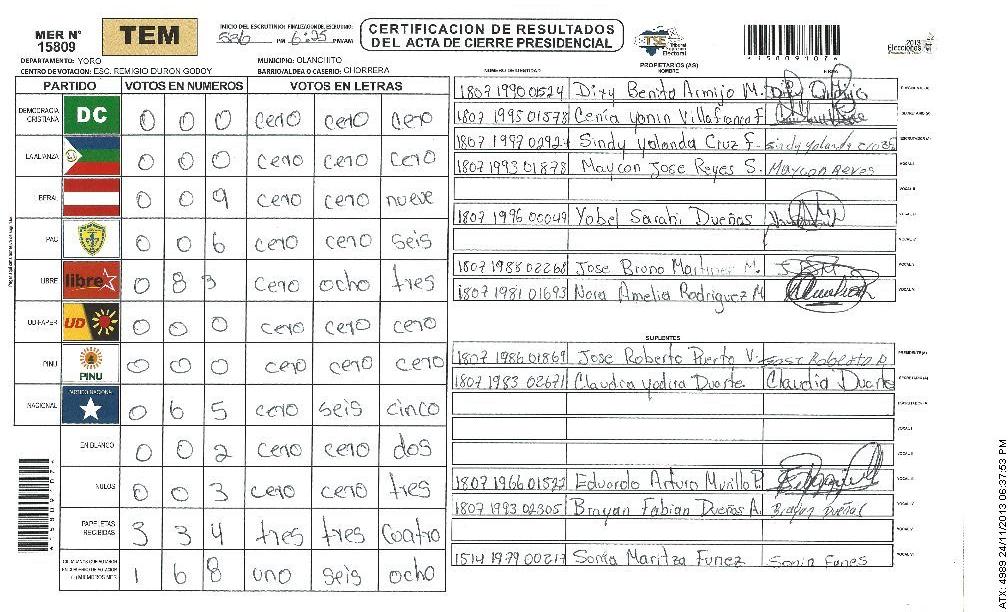 MER N°
15809
TEM
INICIO DEL ESCRUTINIO: FINALIZACION DEL ESCRUTINIO:
PM 6:25 PM/AM
CERTIFICACION DE RESULTADOS
DEL ACTA DE CIERRE PRESIDENCIAL
TSE Tribunal Supremo Electoral
4158091076
2013
Elecciones
DEPARTAMENTO: YORO
MUNICIPIO: OLANCHITO
CENTRO DE VOTACION: ESC. REMIGIO DURON GODOY
BARRIO/ALDEA O CASERIO: CHORRERA
PARTIDO VOTOS EN NUMEROS VOTOS EN LETRAS
DEMOCRACIA CRISTIANA DC 0 0 0 cero cero cero
LA ALIANZA 0 0 0 cero cero cero
BERAL 0 0 9 cero cero nueve
PAC 0 0 6 cero cero seis
LIBRE libre 0 8 3 cero ocho tres
UD/FAPER UD 0 0 0 cero cero cero
PINU PINU 0 0 0 cero cero cero
NACIONAL PARTIDO NACIONAL 0 6 5 cero seis cinco
EN BLANCO 0 0 2 cero cero dos
NULOS 0 0 3 cero cero tres
PAPELETAS RECIBIDAS 3 3 4 tres tres cuatro
1 6 8 uno seis ocho
NUMERO DE IDENTIDAD PROPIETARIOS (AS) NOMBRE FIRMA
1807 1990 01524 Diry Benito Armijo M.
1807 1995 01578 Cenia Yonin Villafranca F.
1807 1997 02924 Sindy Yolanda Cruz F. Sindy Yolanda
1807 1993 01878 Maycon Jose Reyes S. Maycon Reyes
1807 1996 00049 Yobel Sarahi Dueñas
1807 1988 02268 Jose Bruno Martinez M.
1807 1981 01693 Nora Amelia Rodriguez M
SUPLENTES
1807 1986 01869 Jose Roberto Puerto V. Jose Roberto P
1807 1983 02671 Claudia Yadira Duarte Claudia Duarte
1807 1966 01522 Eduardo Arturo Murillo P.
1807 1993 02305 Brayan Fabian Dueñas A. Brayan Dueñas
1514 1979 00217 Sonia Maritza Funez Sonia Funes
ATX: 4989 24/11/2013 06:37:53 PM